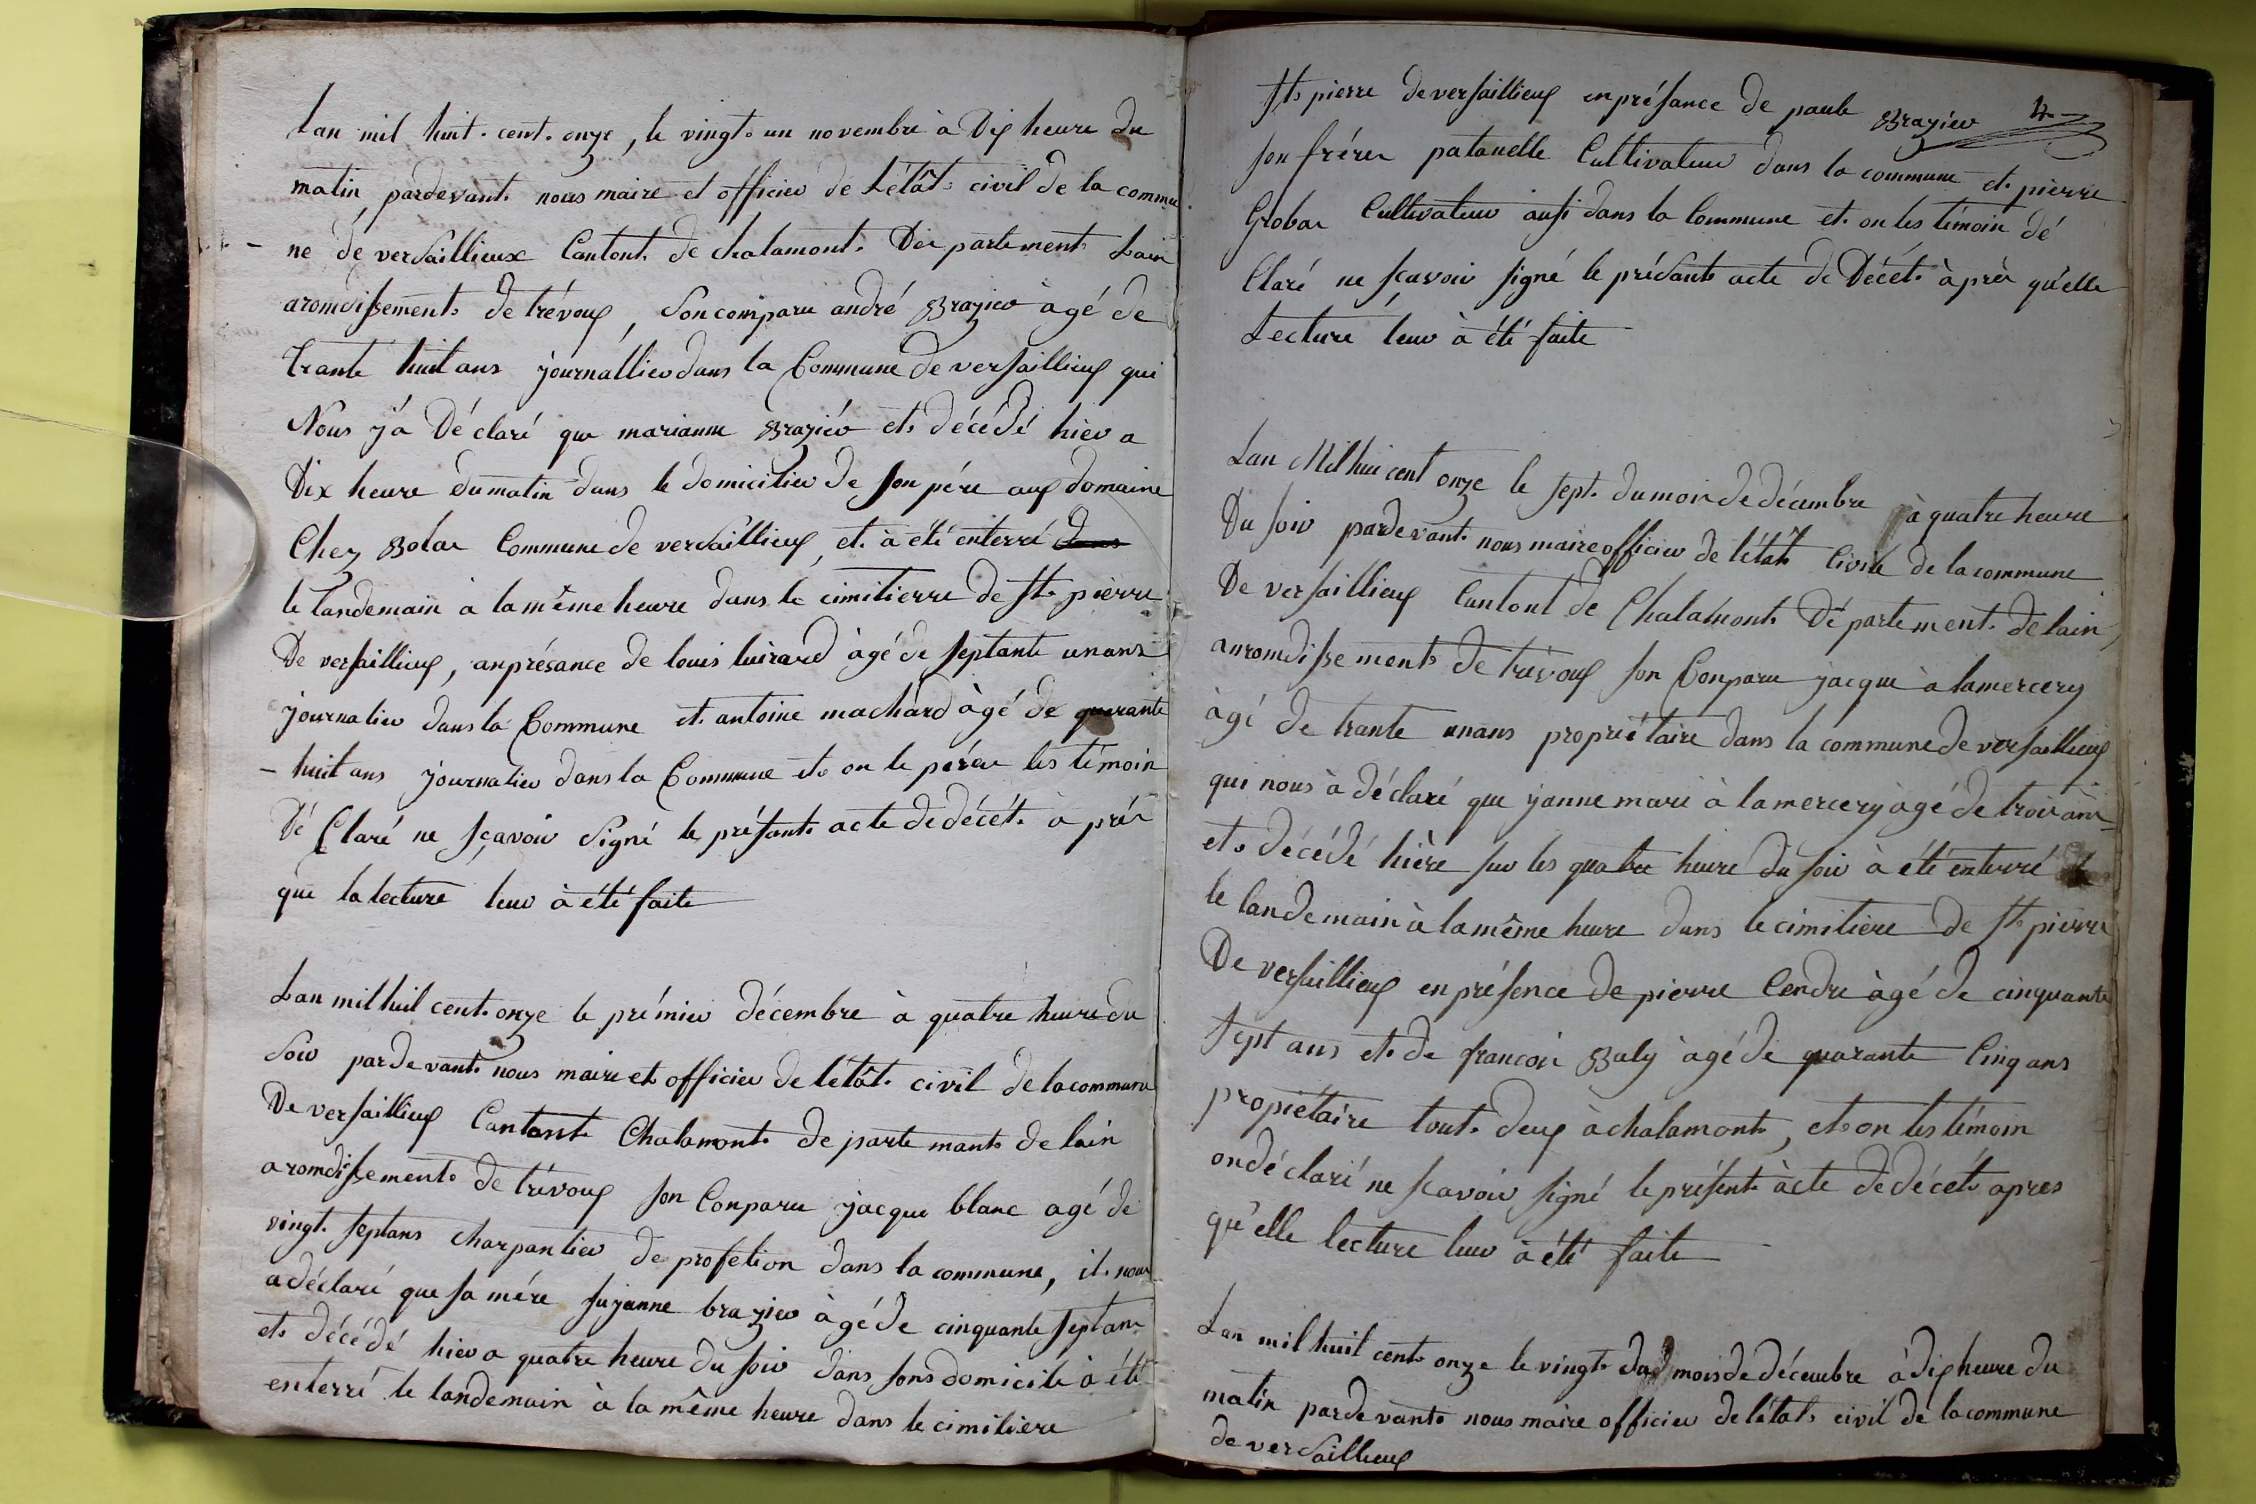 Lan mil huit. cent. onze, le vingt. un novembre à Dix heure du
matin, pardevant. nous maire et officier de L'état. civil de la commu
ne de versaillieux Canton. de chalamont. Dé partement. Lain
arondissement. de trévoux, Son comparu andré Brazier àgé de
trante huit ans journallier dans la Commune de versaillieux qui
Nous y'a Dé claré que marianne Brazier et. décédé hier a
Dix heure du matin dans le domicilier de son pére aux domaine
Chez Bolar Commune de versaillieux, et. à été enterré dans
le landemain à la même heure dans le cimitierre de St. pierre
De versaillieux, anprésance de louis luirard àgé de septante unans
journalier dans la Commune et. antoine machard àgé de quarante
- huit ans journalier dans la Commune et. on le pérer les témoin
Dé Claré ne sçavoir Signé le présant. acte de décét. à prér
que la lecture leur à été faite
Lan mil huit cent. onze le prémier décembre à quatre heure du
Soir pardevant. nous maire et officier de l'état. civil de la commune
De versaillieux Cantont. Chalamont. de parte mant. de lain
arondissement. de trévoux son Conparu jacque blanc agé de
vingt. septans charpantier de profetion dans la commune, il. nous
a déclaré que sa mére suzanne brazier àgé de cinquante septans
et. décédé hier a quatre heure du soir dans sons domicile à été
enterré le landemain à la même heure dans le cimitiere
St. pierre de versaillieux enprésance de paule Brazier 4.
son frérer patanelle Cultivateur dans la commune et. pierre
Grobar Cultivateur ausi dans la Commune et. on les témoin dé
Claré ne sçavoir signé le présant. acte de Décét. àprèr qu'elle
Lecture leur à été faite
Lan Mil hui cent onze le sept. du moir de décembre à quatre heure
Du soir pardevant. nous maire officier de l'état. Civile de la commune
De versaillieux Cantont de Chalamont. Dé partement. de lain,
anrondissement. de trévoux son Conparu jacque à lamercery
àgé de trante unans propriétaire dans la commune de versaillieux
qui nous à déclaré que janne marie à lamercery àgé de troir anr
et. décédé hière sur les quatre heure du soir à été enterré
le landemain à la même heure dans le cimitiere de St. pierre
De versaillieux en présence de pierre Cendre àgé de cinquante
sept ans et. de francoir Baly àgé de quarante Cinq ans
propiétaire tout. deux à chalamont., et. on les témoin
on déclaré ne scavoir signé le présent. àcte de décét. apres
qu'elle lecture leur à été faite
Lan mil huit cent. onze le vingt. du mois de décembre à dix heure du
matin pardevant. nous maire officier de l'état. civil de la commune
de versaillieux